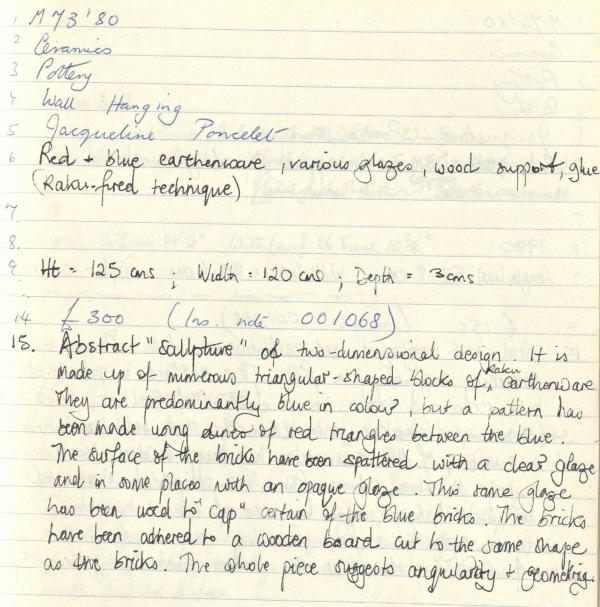 1 M73'80
2 Ceramics
3 Pottery
4 Wall Hanging
5 Jacqueline Poncelet
6 Red + blue earthenware, various glazes, wood support, glue
(Raku-fired technique)
7.
8.
9. Ht = 125 cms ; Width = 120 cms ; Depth = 3 cms
14 £300 (Ins. 001068)
15. Abstract "sculpture" of two-dimensional design. It is
made up of numerous triangular-shaped blocks of raku earthenware
They are predominantly blue in colour, but a pattern has
been made using of red triangles between the blue.
The surface of the bricks have been spattered with a clear glaze
and in some places with an opaque glaze. This same glaze
has been used to "cap" certain of the blue bricks. The bricks
have been adhered to a wooden board cut to the same shape
as the bricks. The whole piece suggests angularity + geometrics.